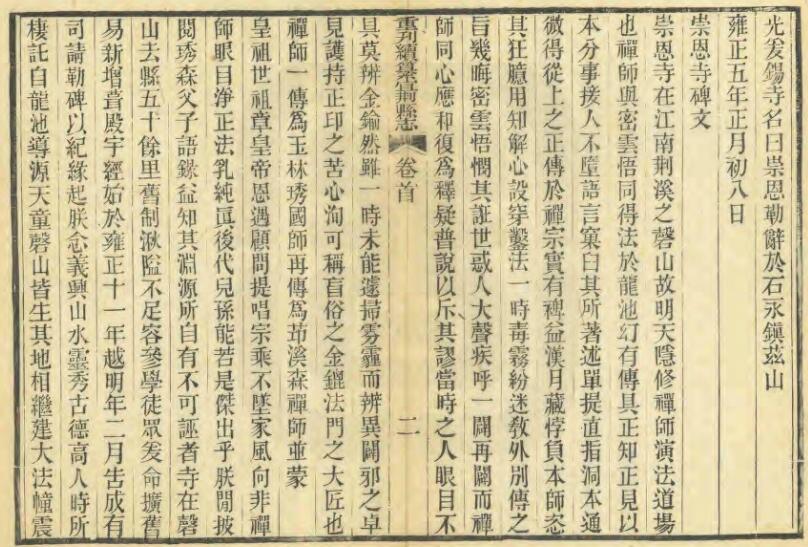 光爰錫寺名曰崇恩勒辭於石永鎮茲山
雍正五年正月初八日
崇恩寺碑文
崇恩寺在江南荆溪之磬山故明天隱修禪師演法道場
也禪師與密雲悟同得法於龍池幻有傳具正知正見以
本分事接人不墮語言窠臼其所著述單提直指洞本通
微得從上之正傳於禪宗實有裨益漢月藏悖負本師恣
其狂臆用知解心設穿鑿法一時毒霧紛迷教外別傳之
旨幾晦密雲悟憫其誑世惑人大聲疾呼一闢再闢而禪
師同心應和復爲釋疑普說以斥其謬當時之人眼目不
重刋續纂宜荆縣志
卷首
二
具莫辨金鍮然雖一時未能遽掃雾霾而辨異闢邪之卓
見護持正印之苦心洵可稱盲俗之金鎞法門之大匠也
禪師一傳爲玉林琇國師再傳爲茆溪森禪師並蒙
皇祖世祖章皇帝恩遇顧問提唱宗乘不墜家風向非禪
師眼目淨正法乳純眞後代兒孫能若是傑出乎朕閒披
閱琇森父子語錄益知其淵源所自有不可誣者寺在磬
山去縣五十餘里舊制湫隘不足容參學徒眾爰命擴舊
易新增葺殿宇經始於雍正十一年越明年二月告成有
司請勒碑以紀緣起朕念義興山水靈秀古德高人時所
棲託自龍池導源天童磬山皆生其地相繼建大法幢震